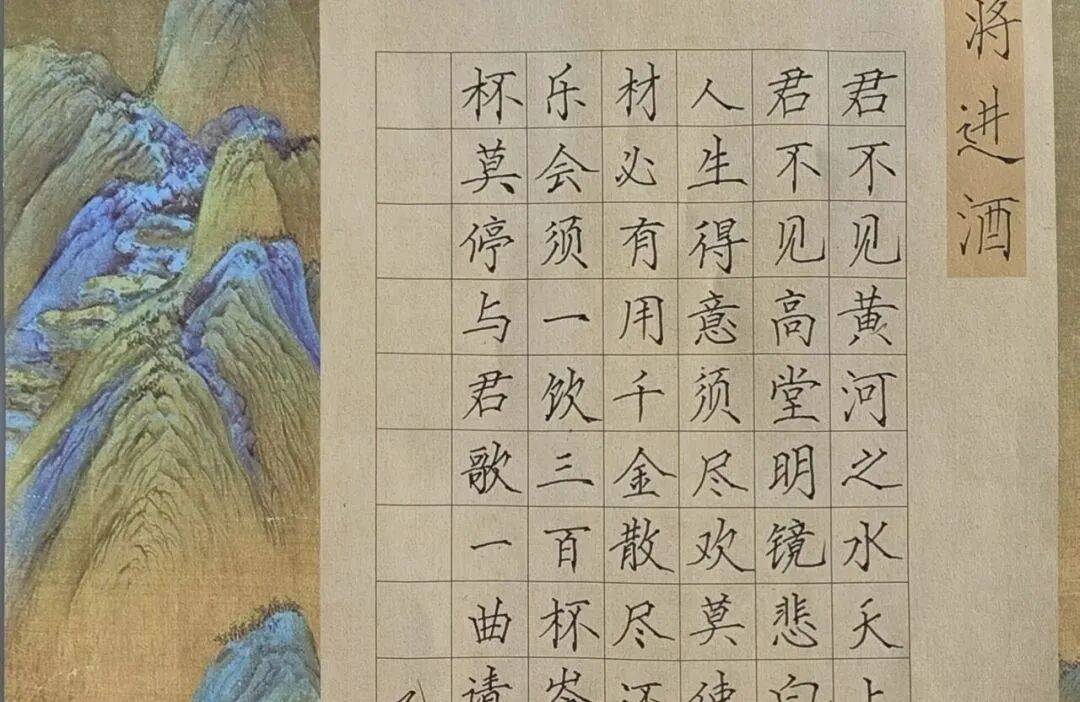 将进酒
君不见黄河之水天上
君不见高堂明镜悲白
人生得意须尽欢莫使
材必有用千金散尽还
乐会须一饮三百杯岑
杯莫停与君歌一曲请